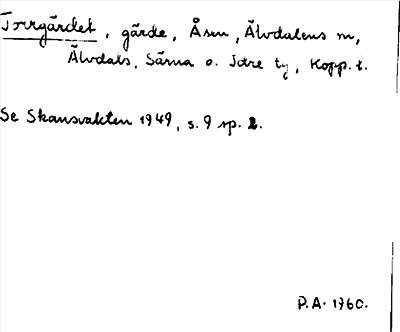 Torrgärdet, gärde, Åsen, Älvdalens m,
Älvdals, Särna o. Idre ty, Kopp. l.
Se Skansvakten 1949, s. 9 sp. 2.
P.A. 1960.